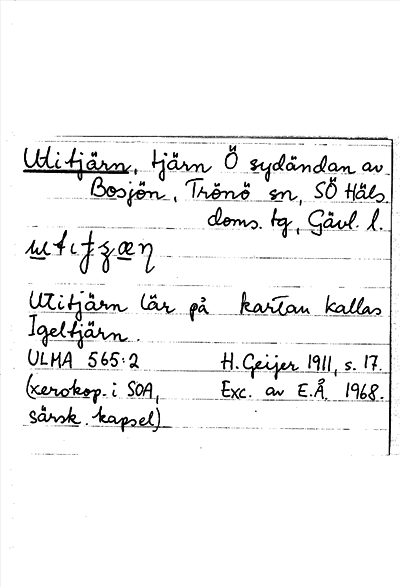 Utitjärn, tjärn Ö sydändan av
Bosjön, Trönö sn, SÖ Häls.
doms. tg, Gävl. l.
Utitjärn lär på kartan kallas
Igeltjärn.
ULMA 565:2 H. Geijer 1911, s. 17.
(xerokop. i SOA, Exc. av E.Å. 1968.
särsk. kapsel)